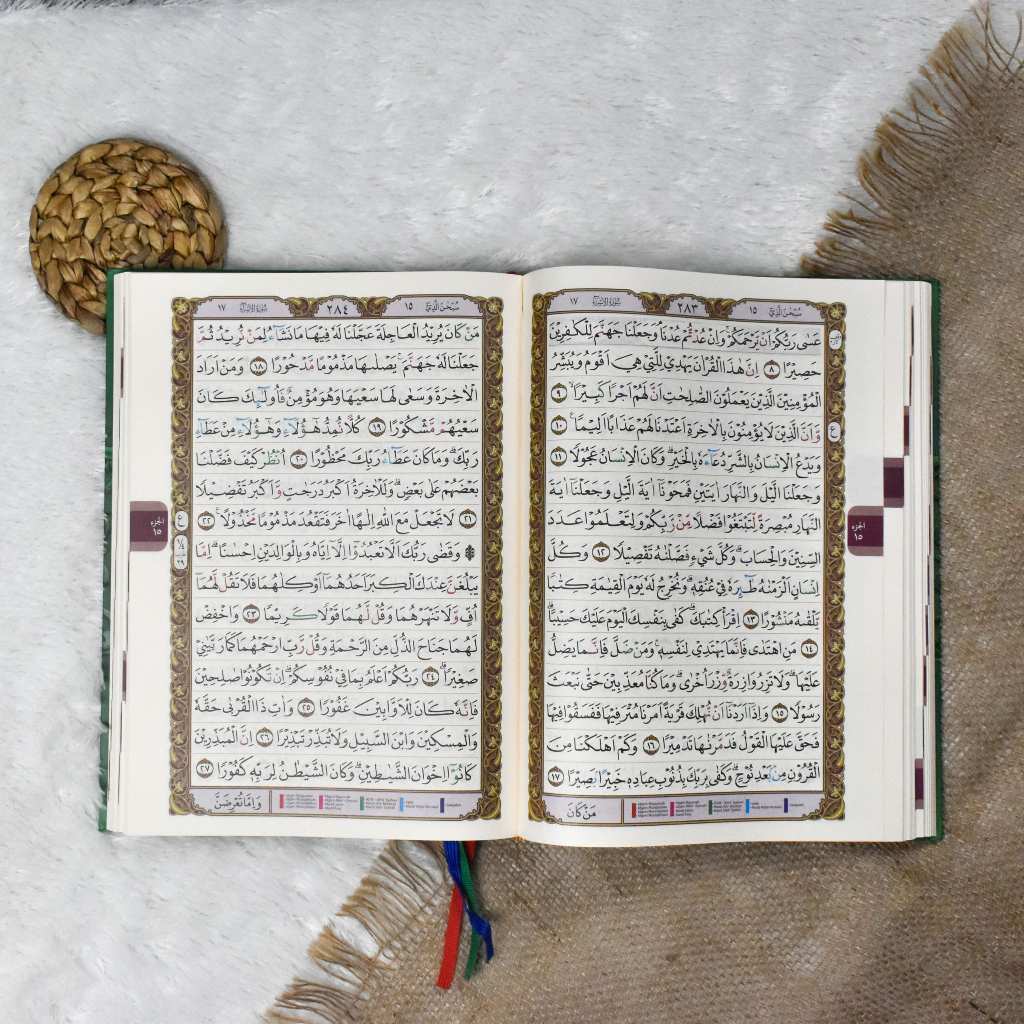 سُبْحٰنَ الَّذِيْٓ ١٥ ٢٨٣ سُوْرَةُ الْاِسْرَاءِ ١٧
عَسٰى رَبُّكُمْ اَنْ يَّرْحَمَكُمْۚ وَاِنْ عُدْتُّمْ عُدْنَاۘ وَجَعَلْنَا جَهَنَّمَ لِلْكٰفِرِيْنَ
حَصِيْرًا ٨ اِنَّ هٰذَا الْقُرْاٰنَ يَهْدِيْ لِلَّتِيْ هِيَ اَقْوَمُ وَيُبَشِّرُ
الْمُؤْمِنِيْنَ الَّذِيْنَ يَعْمَلُوْنَ الصّٰلِحٰتِ اَنَّ لَهُمْ اَجْرًا كَبِيْرًاۙ ٩
وَّاَنَّ الَّذِيْنَ لَا يُؤْمِنُوْنَ بِالْاٰخِرَةِ اَعْتَدْنَا لَهُمْ عَذَابًا اَلِيْمًاࣖ ١٠
وَيَدْعُ الْاِنْسَانُ بِالشَّرِّ دُعَاۤءَهٗ بِالْخَيْرِۗ وَكَانَ الْاِنْسَانُ عَجُوْلًا ١١
وَجَعَلْنَا الَّيْلَ وَالنَّهَارَ اٰيَتَيْنِ فَمَحَوْنَآ اٰيَةَ الَّيْلِ وَجَعَلْنَآ اٰيَةَ
النَّهَارِ مُبْصِرَةً لِّتَبْتَغُوْا فَضْلًا مِّنْ رَّبِّكُمْ وَلِتَعْلَمُوْا عَدَدَ
السِّنِيْنَ وَالْحِسَابَۗ وَكُلَّ شَيْءٍ فَصَّلْنٰهُ تَفْصِيْلًا ١٢ وَكُلَّ
اِنْسَانٍ اَلْزَمْنٰهُ طٰۤىِٕرَهٗ فِيْ عُنُقِهٖۗ وَنُخْرِجُ لَهٗ يَوْمَ الْقِيٰمَةِ كِتٰبًا
يَّلْقٰىهُ مَنْشُوْرًا ١٣ اِقْرَأْ كِتٰبَكَۗ كَفٰى بِنَفْسِكَ الْيَوْمَ عَلَيْكَ حَسِيْبًاۗ
١٤ مَنِ اهْتَدٰى فَاِنَّمَا يَهْتَدِيْ لِنَفْسِهٖۚ وَمَنْ ضَلَّ فَاِنَّمَا يَضِلُّ
عَلَيْهَاۗ وَلَا تَزِرُ وَازِرَةٌ وِّزْرَ اُخْرٰىۗ وَمَا كُنَّا مُعَذِّبِيْنَ حَتّٰى نَبْعَثَ
رَسُوْلًا ١٥ وَاِذَآ اَرَدْنَآ اَنْ نُّهْلِكَ قَرْيَةً اَمَرْنَا مُتْرَفِيْهَا فَفَسَقُوْا فِيْهَا
فَحَقَّ عَلَيْهَا الْقَوْلُ فَدَمَّرْنٰهَا تَدْمِيْرًا ١٦ وَكَمْ اَهْلَكْنَا مِنَ
الْقُرُوْنِ مِنْۢ بَعْدِ نُوْحٍۗ وَكَفٰى بِرَبِّكَ بِذُنُوْبِ عِبَادِهٖ خَبِيْرًاۢ بَصِيْرًا ١٧
مَنْ كَانَ
الجزء
١٥
سُبْحٰنَ الَّذِيْٓ ١٥ ٢٨٤ سُوْرَةُ الْاِسْرَاءِ ١٧
مَنْ كَانَ يُرِيْدُ الْعَاجِلَةَ عَجَّلْنَا لَهٗ فِيْهَا مَا نَشَاۤءُ لِمَنْ نُّرِيْدُ ثُمَّ
جَعَلْنَا لَهٗ جَهَنَّمَۚ يَصْلٰىهَا مَذْمُوْمًا مَّدْحُوْرًا ١٨ وَمَنْ اَرَادَ
الْاٰخِرَةَ وَسَعٰى لَهَا سَعْيَهَا وَهُوَ مُؤْمِنٌ فَاُولٰۤىِٕكَ كَانَ
سَعْيُهُمْ مَّشْكُوْرًا ١٩ كُلًّا نُّمِدُّ هٰٓؤُلَاۤءِ وَهٰٓؤُلَاۤءِ مِنْ عَطَاۤءِ
رَبِّكَۗ وَمَا كَانَ عَطَاۤءُ رَبِّكَ مَحْظُوْرًا ٢٠ اُنْظُرْ كَيْفَ فَضَّلْنَا
بَعْضَهُمْ عَلٰى بَعْضٍۗ وَلَلْاٰخِرَةُ اَكْبَرُ دَرَجٰتٍ وَّاَكْبَرُ تَفْضِيْلًا
٢١ لَا تَجْعَلْ مَعَ اللّٰهِ اِلٰهًا اٰخَرَ فَتَقْعُدَ مَذْمُوْمًا مَّخْذُوْلًاࣖ ٢٢
۞ وَقَضٰى رَبُّكَ اَلَّا تَعْبُدُوْٓا اِلَّآ اِيَّاهُ وَبِالْوَالِدَيْنِ اِحْسٰنًاۗ اِمَّا
يَبْلُغَنَّ عِنْدَكَ الْكِبَرَ اَحَدُهُمَآ اَوْ كِلٰهُمَا فَلَا تَقُلْ لَّهُمَآ
اُفٍّ وَّلَا تَنْهَرْهُمَا وَقُلْ لَّهُمَا قَوْلًا كَرِيْمًا ٢٣ وَاخْفِضْ
لَهُمَا جَنَاحَ الذُّلِّ مِنَ الرَّحْمَةِ وَقُلْ رَّبِّ ارْحَمْهُمَا كَمَا رَبَّيٰنِيْ
صَغِيْرًاۗ ٢٤ رَبُّكُمْ اَعْلَمُ بِمَا فِيْ نُفُوْسِكُمْۗ اِنْ تَكُوْنُوْا صٰلِحِيْنَ
فَاِنَّهٗ كَانَ لِلْاَوَّابِيْنَ غَفُوْرًا ٢٥ وَاٰتِ ذَا الْقُرْبٰى حَقَّهٗ
وَالْمِسْكِيْنَ وَابْنَ السَّبِيْلِ وَلَا تُبَذِّرْ تَبْذِيْرًا ٢٦ اِنَّ الْمُبَذِّرِيْنَ
كَانُوْٓا اِخْوَانَ الشَّيٰطِيْنِۗ وَكَانَ الشَّيْطٰنُ لِرَبِّهٖ كَفُوْرًا ٢٧
وَاِمَّا تُعْرِضَنَّ
الجزء
١٥